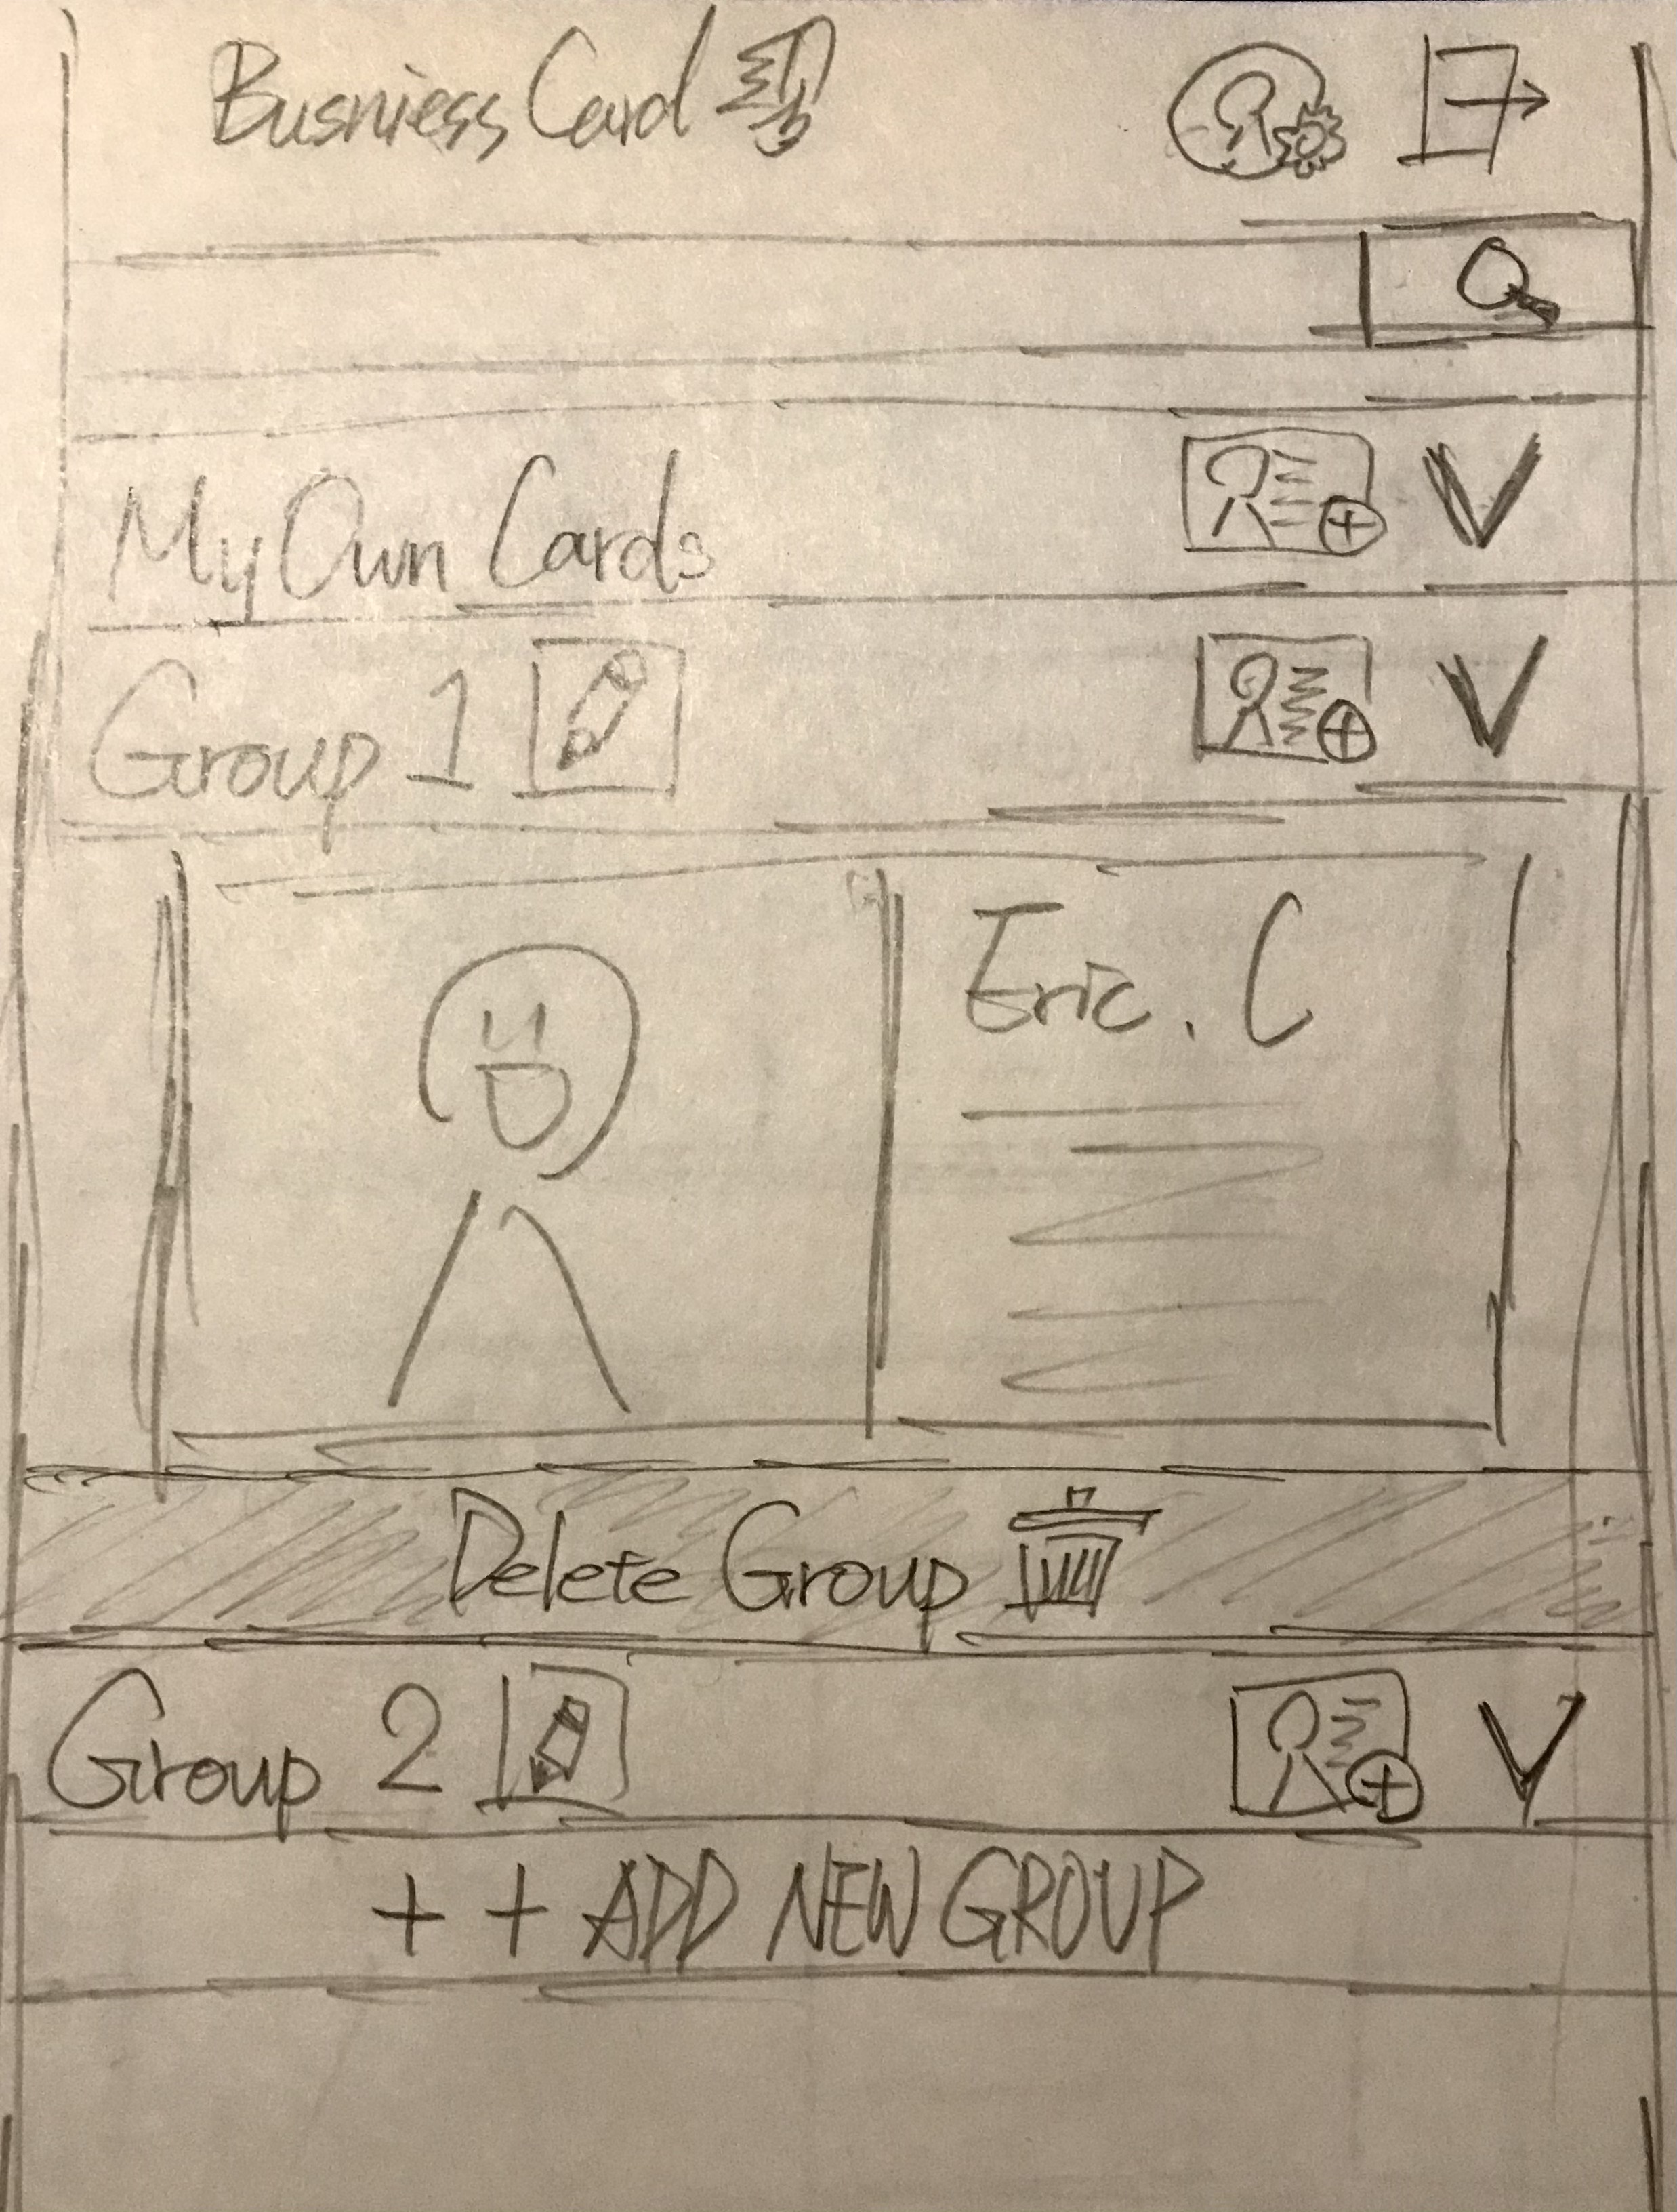 Busniess Card
My Own Cards
Group 1
Eric. C
Delete Group
Group 2
+ + ADD NEW GROUP